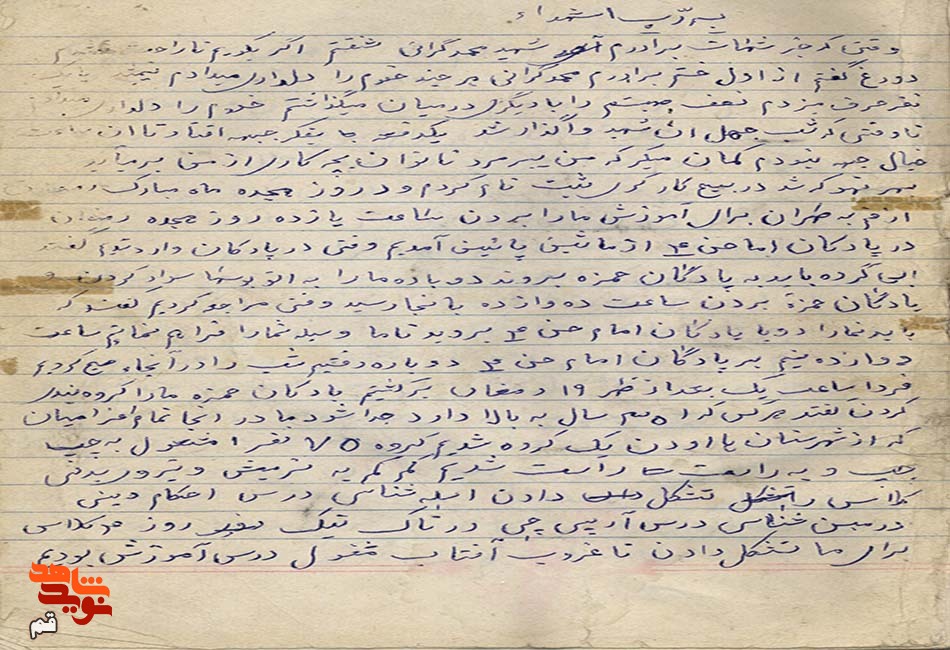 به رب الشهداء
وقتی که خبر شهادت برادرم شهید محمد گرانی شنفتم اگر بگویم ناراحت نشدم
دورغ گفتم از اول ختم برادرم محمد گرانی هر چند خودم را دلداری میدادم
نفر حرف میزدم نصف را با دیگری در میان میگذاشتم خودم را دلداری میدادم
تا وقتی که شب چهل آن شهید واگذار شد یکدفعه به فکر جبهه افتاد تا آن ساعت
خیال جبهه نبودم گمان میکر که من پیر مرد ناتوان چه کاری از من بر میآید
بهر نهو که شد در بسیج کارگری ثبت نام کردم و در روز هیجده ماه مبارک رمضان
از قم به طهران برای آموزش ما را بردن ساعت یازده روز هیجده رمضان
در پادکان امام حسن ع از ماشین پائین آمدیم وقتی در پادکان وارد شویم گفتند
این گرده باید به پادگان حمزه بروند دوباده ما را به اتوبوسها سوار کردن و
پادگان حمزة بردن ساعت ده وازده بانجا رسید وقتی مراجو کردیم گفتند که
باید شما را دوبا پادگان امام حسن ع بروید تا ما وسیله شما را فراهم نمائیم ساعت
دوازده نیم به پادگان امام حسن ع دوباره رفتیم شب را در آنجا صبح کردیم
فردا ساعت یک بعد از ظهر ۱۹ رمضان برگشتیم پادکان حمزه ما را گروه بندی
کردن گفتند هر کس که از ۵۰ سال به بالا دارد جدا شود ما در انجا تمام اعزامیهان
که از شهرستان یا اودن یک گرده شدیم گروه ۷۵ نفر مشغول به چپ
چپ و به راست راست شدیم کم کم به نرمیش ونیروی بدنی
کلااس تشکل دادن اسله شناسی درس احکام دینی
در مین شناسی درس آر پی جی در تاک تیک روز هر کلااس
برای ما تشکل دادن تا غروب آفتاب مشغول درس آموزش بودیم
نوید شاهد
قم